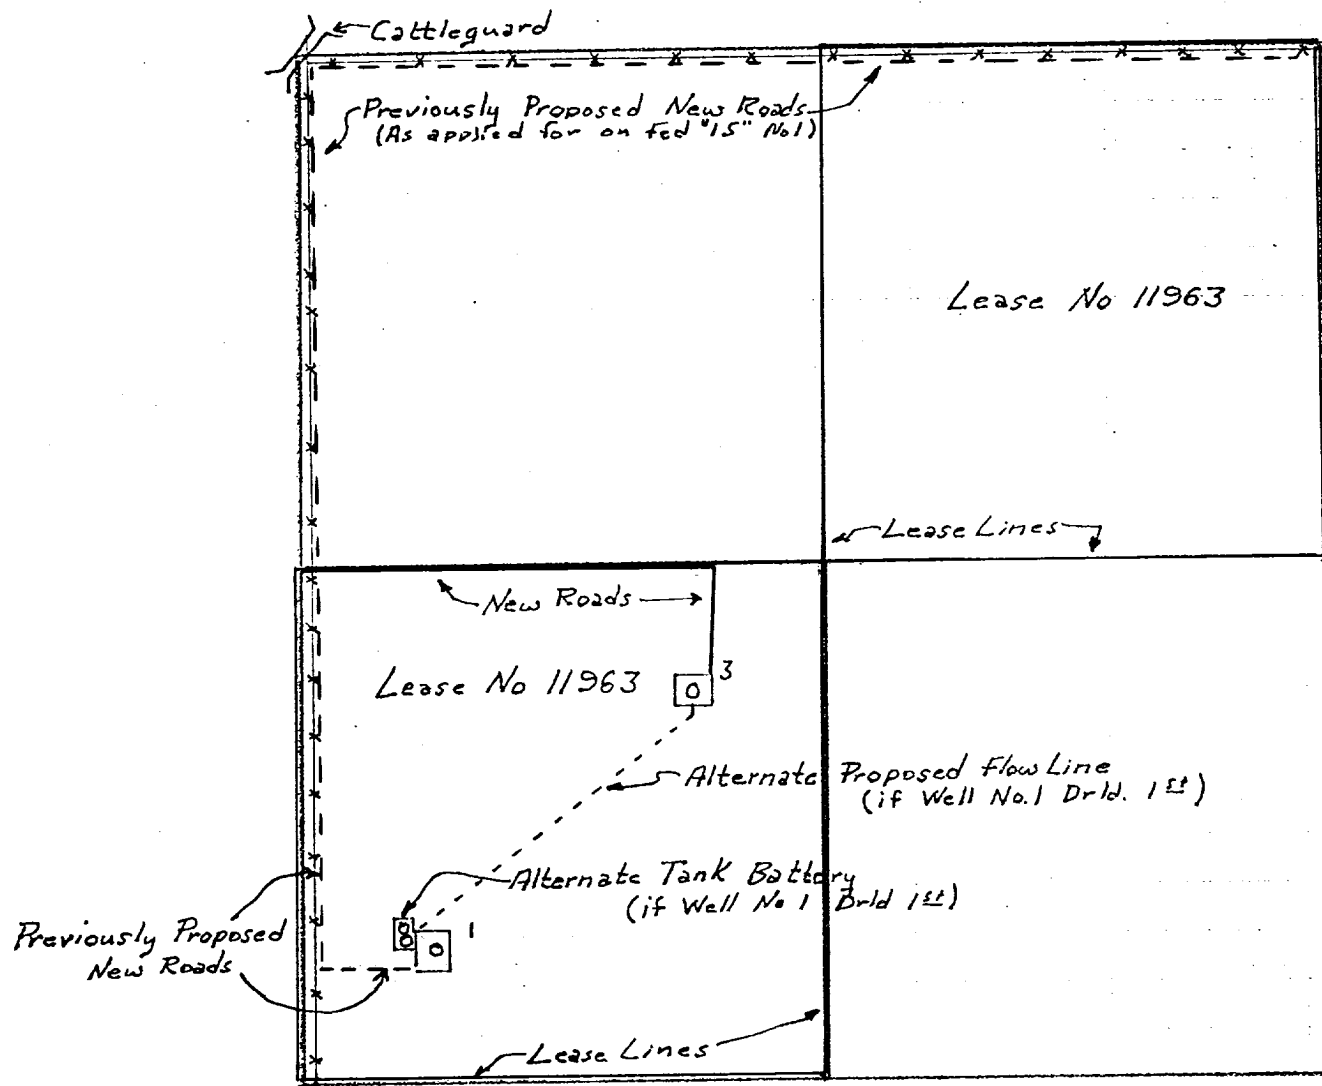 Cattleguard
Previously Proposed New Roads
(As applied for on Fed "15" No1)
Lease No 11963
Lease Lines
New Roads
Lease No 11963
3
Alternate Proposed Flow Line
(if Well No.1 Drld. 1st)
Alternate Tank Battery
(if Well No 1 Drld 1st)
1
Previously Proposed
New Roads
Lease Lines